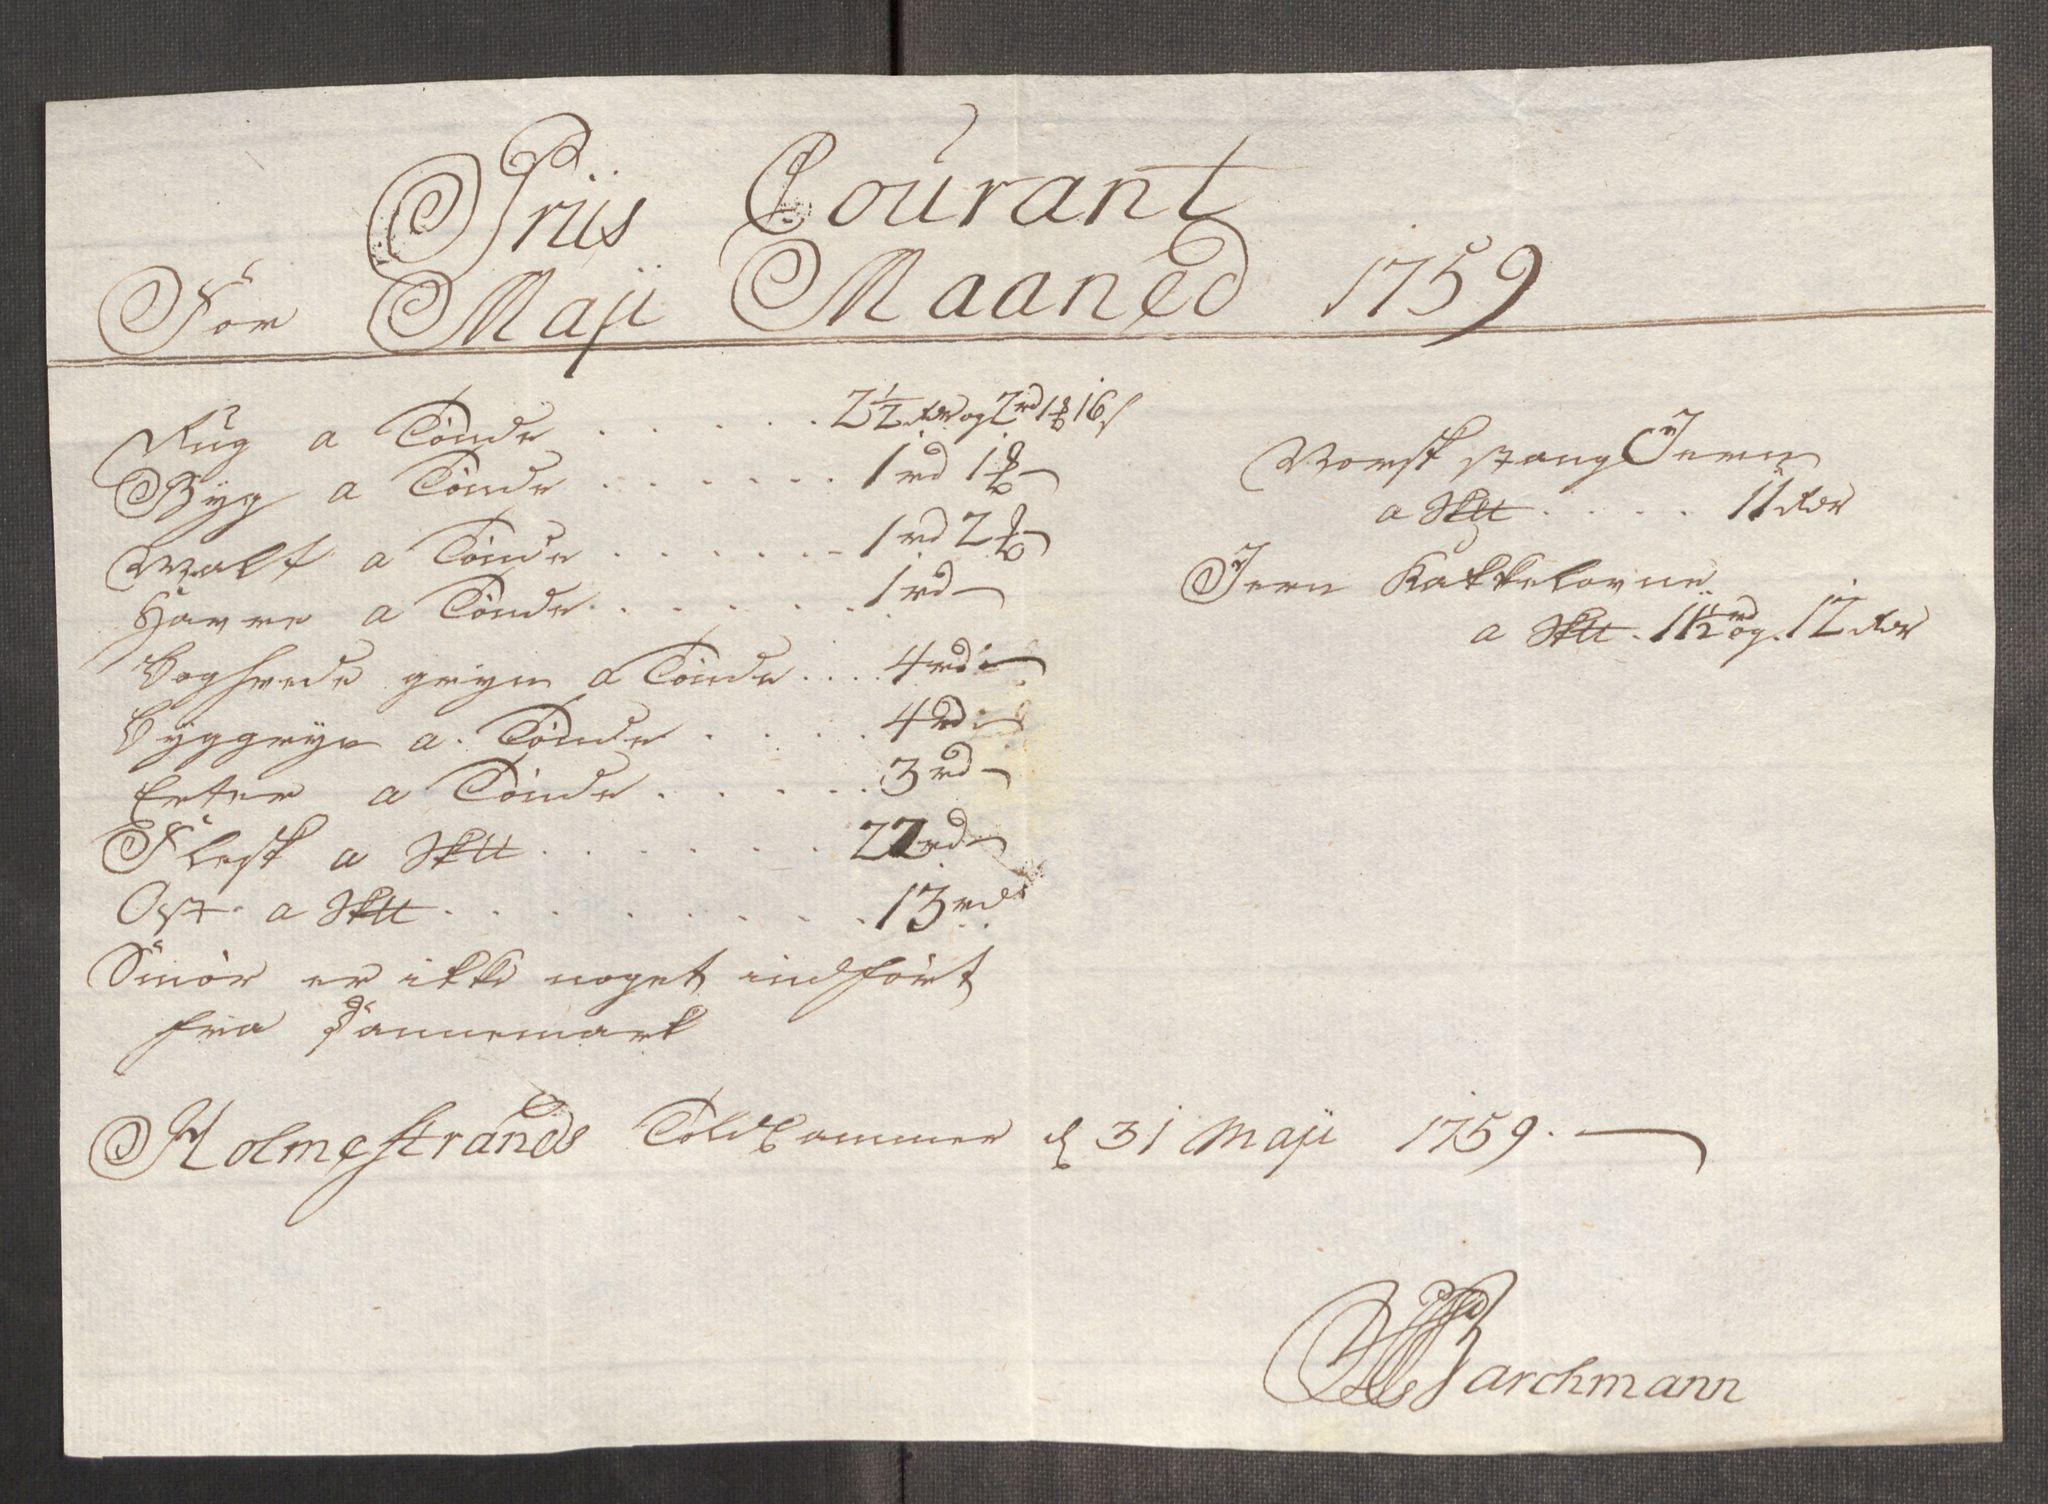 Priis Courant
For Maji Maaned 1759
Rug a Tönde . . . . . . 2½ rdr og 2rd 1 ꝳ 16 s
Byg a Tönde . . . . . . 1 rd 1 ꝳ
Malt a Tönde . . . . . . 1 rd 2 ꝳ
Havre a Tönde . . . . . . 1 rd
Boghvede gryn a Tönde . . . . 4 rd
Byggryn a Tönde . . . . 4 rd
Erter a Tönde . . . . . 3 rd
Flesk a Sktt . . . . . . 22 rd
Ost a Sktt . . . . . . . . 13 rd
Smör er ikke noget indfört
fra Dannemark
Norsk stang Jern
a Sktt . . . . 11 rdr
Jern Kakkelovne
a Sktt . 11½ rd og 12 rdr
Holmestrands Told Cammer d 31 Maji 1759.
Barchmann